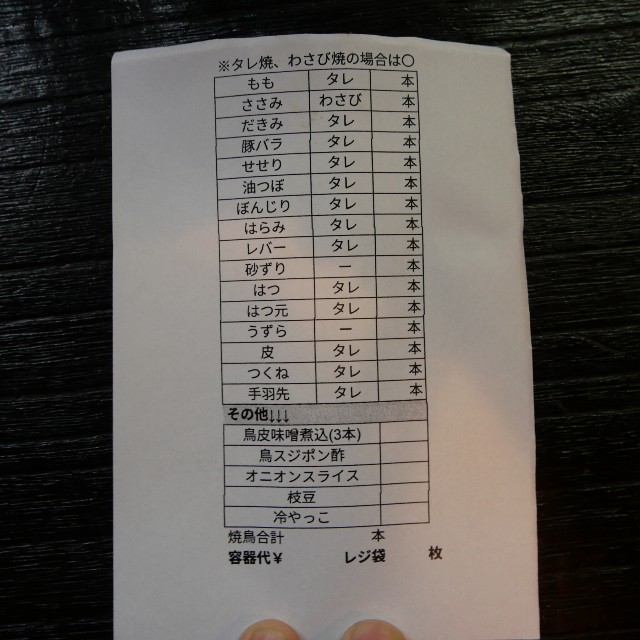 ※タレ焼、わさび焼の場合は○
もも タレ 本
ささみ わさび 本
だきみ タレ 本
豚バラ タレ 本
せせり タレ 本
油つぼ タレ 本
ぼんじり タレ 本
はらみ タレ 本
レバー タレ 本
砂ずり ー 本
はつ タレ 本
はつ元 タレ 本
うずら ー 本
皮 タレ 本
つくね タレ 本
手羽先 タレ 本
その他↓↓↓
鳥皮味噌煮込(3本)
鳥スジポン酢
オニオンスライス
枝豆
冷やっこ
焼鳥合計 本
容器代￥ レジ袋 枚